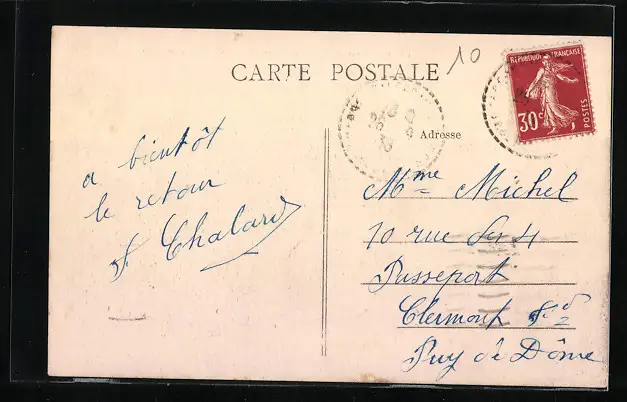 10
CARTE POSTALE
RÉPUBLIQUE FRANÇAISE
30c
POSTES
Adresse
a bientôt
le retour
f Chalard
Mme Michel
10 rue des 4
Passeport
Clermont Fd
Puy de Dôme